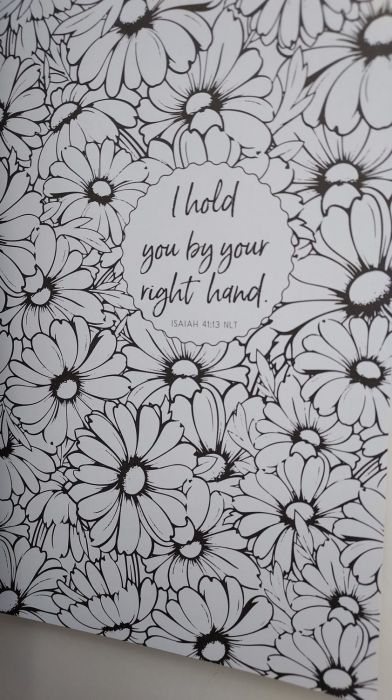 I hold
you by your
right hand.
ISAIAH 41:13 NLT